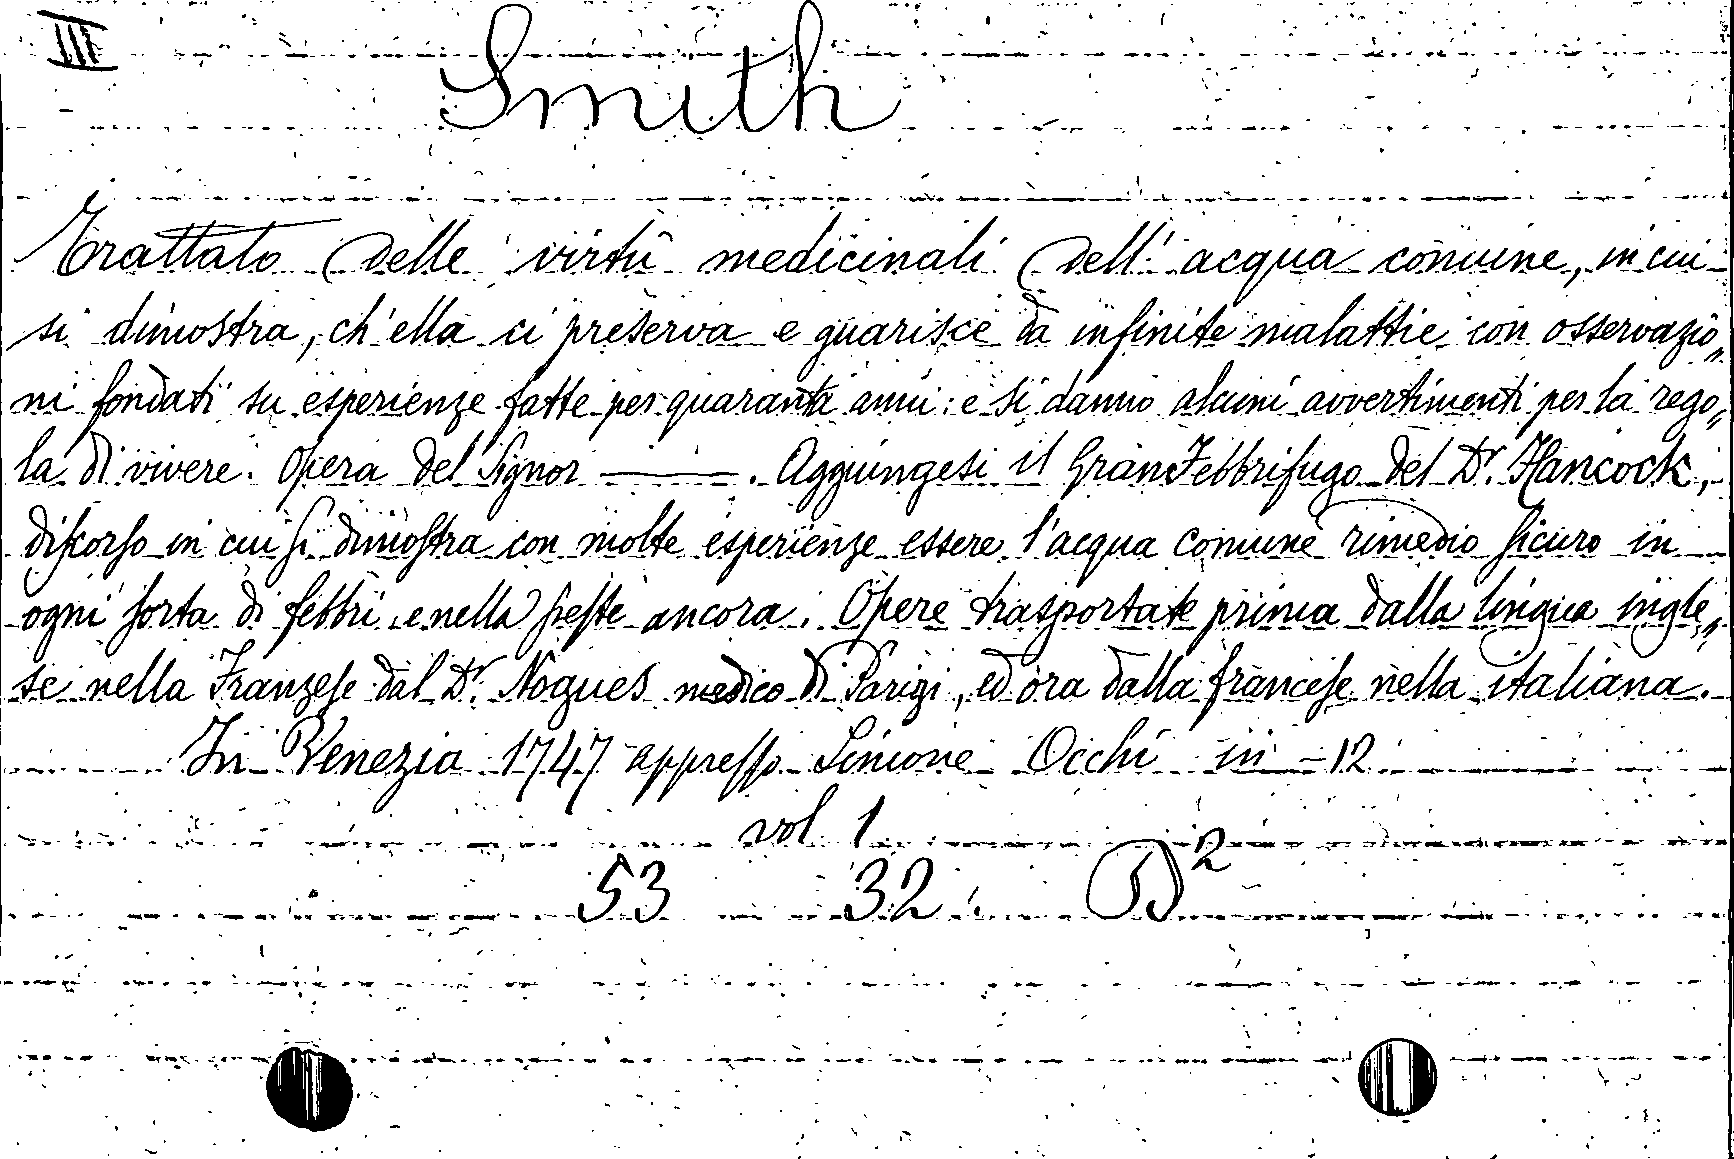 III
Smith
Trattato delle virtù medicinali dell'acqua comune, in cui
si dimostra, ch'ella ci preserva e guarisce da infinite malattie con osservazio„
ni fondati su esperienze fatte per quaranta anni: e si danno alcuni avvertimenti per la rego„
la di vivere. Opera del Signor ———. Aggiungesi il Gran Febbrifugo del Dr. Hancock,
diſcorſo in cui ſi dimoſtra con molte esperienze essere l'acqua comune rimedio ſicuro in
ogni ſorta di febbri e nella peſte ancora. Opere trasportate prima dalla lingua ingle„
se nella Franzeſe dal Dr. Nogues medico di Parigi, ed ora dalla franceſe nella italiana.
In Venezia 1747 appreſſo Simone Occhi in-12
vol. 1
53 32. D²